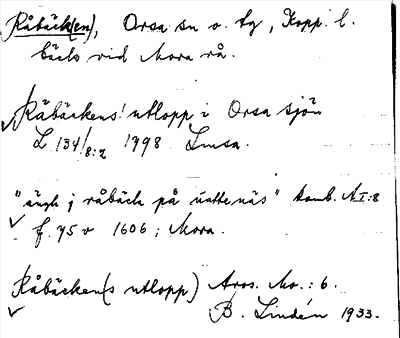 Råbäck(en), Orsa sn o. tg, Kopp. l.
bäck vid Mora rå.
Råbäckens! utlopp i Orsa sjön
L 134/8:2 1998 Linsa.
"ängh j råbäck på uattenäs" Komb. A I:8
f. 75 v 1606; Mora.
Råbäcken(s utlopp) Aros. Mo.: 6.
B. Lindén 1933.